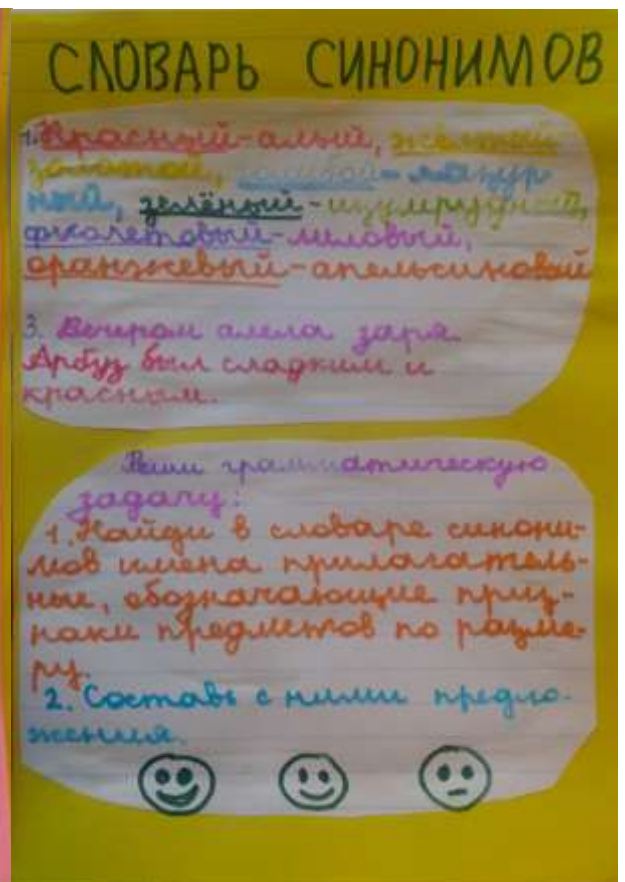 СЛОВАРЬ СИНОНИМОВ
1. Красный-алый, жёлтый-
золотой, голубой-лазур-
ный, зелёный-изумрудный,
фиолетовый-лиловый,
оранжевый-апельсиновый
3. Вечером алела заря.
Арбуз был сладким и
красным.
Реши грамматическую
задачу:
1. Найди в словаре синони-
мов имена прилагатель-
ные, обозначающие приз-
наки предметов по разме-
ру.
2. Составь с ними предло-
жения.